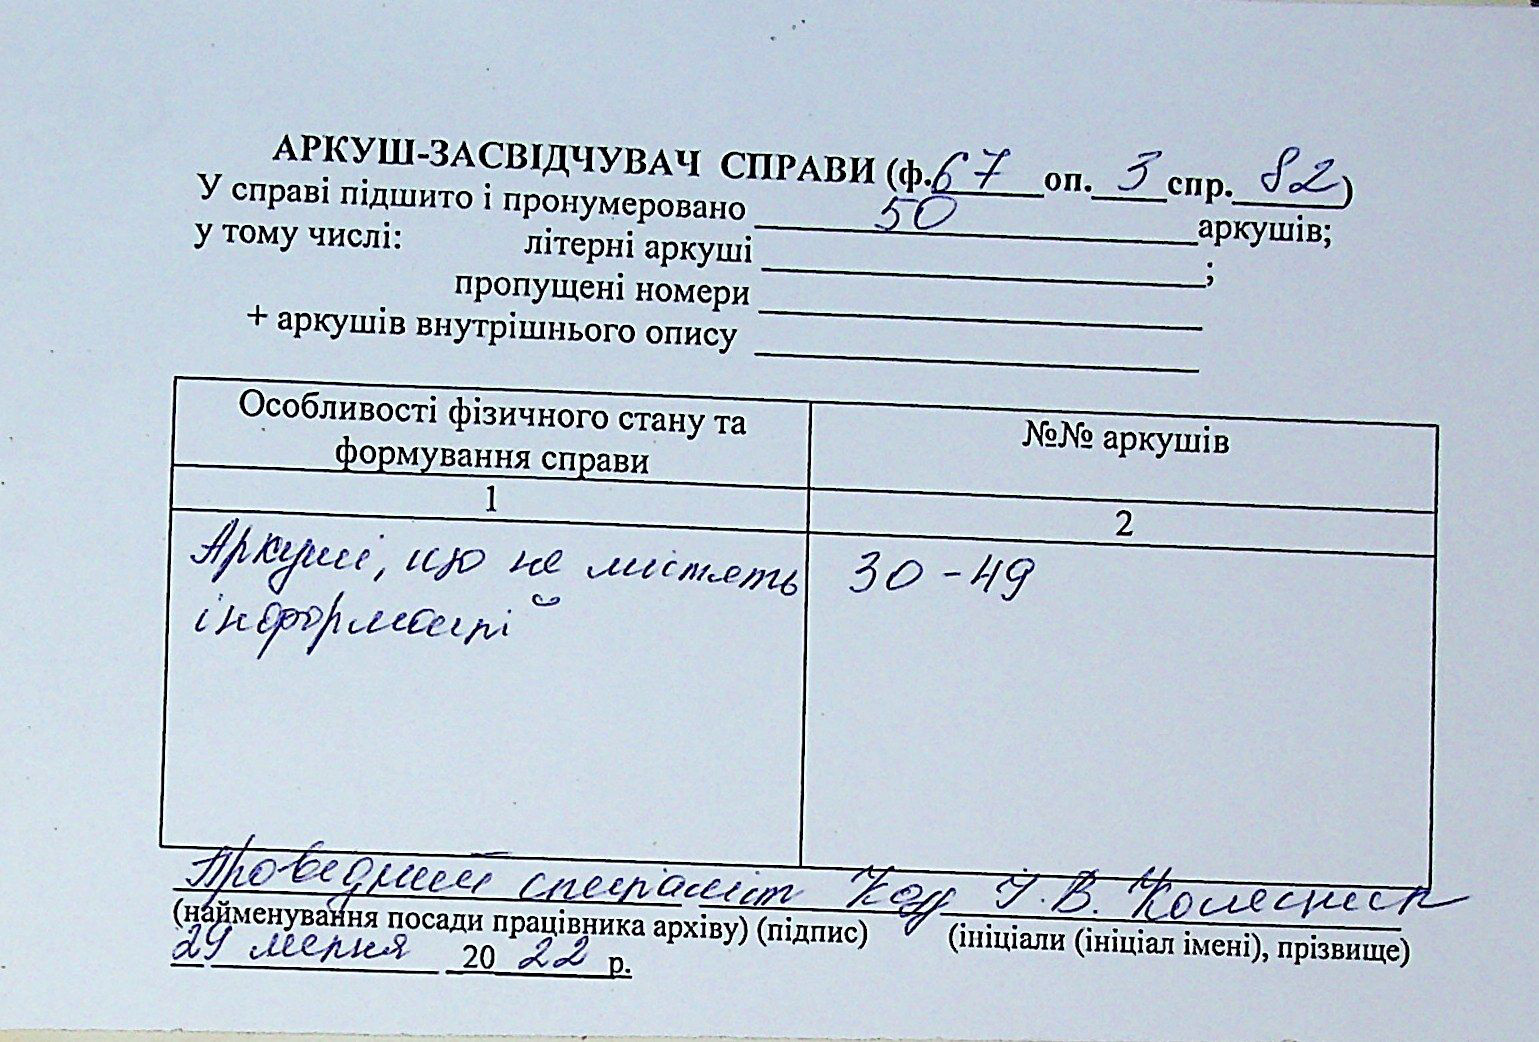 АРКУШ-ЗАСВІДЧУВАЧ СПРАВИ (ф. 67 оп. 3 спр. 82)
У справі підшито і пронумеровано 50 аркушів;
у тому числі: літерні аркуші ;
пропущені номери
+ аркушів внутрішнього опису
Особливості фізичного стану та
формування справи
№№ аркушів
1
2
Аркуші, що не містять
інформації
30-49
Провідний спеціаліст І.В. Колесник
(найменування посади працівника архіву) (підпис) (ініціали (ініціал імені), прізвище)
29 липня 2022 р.